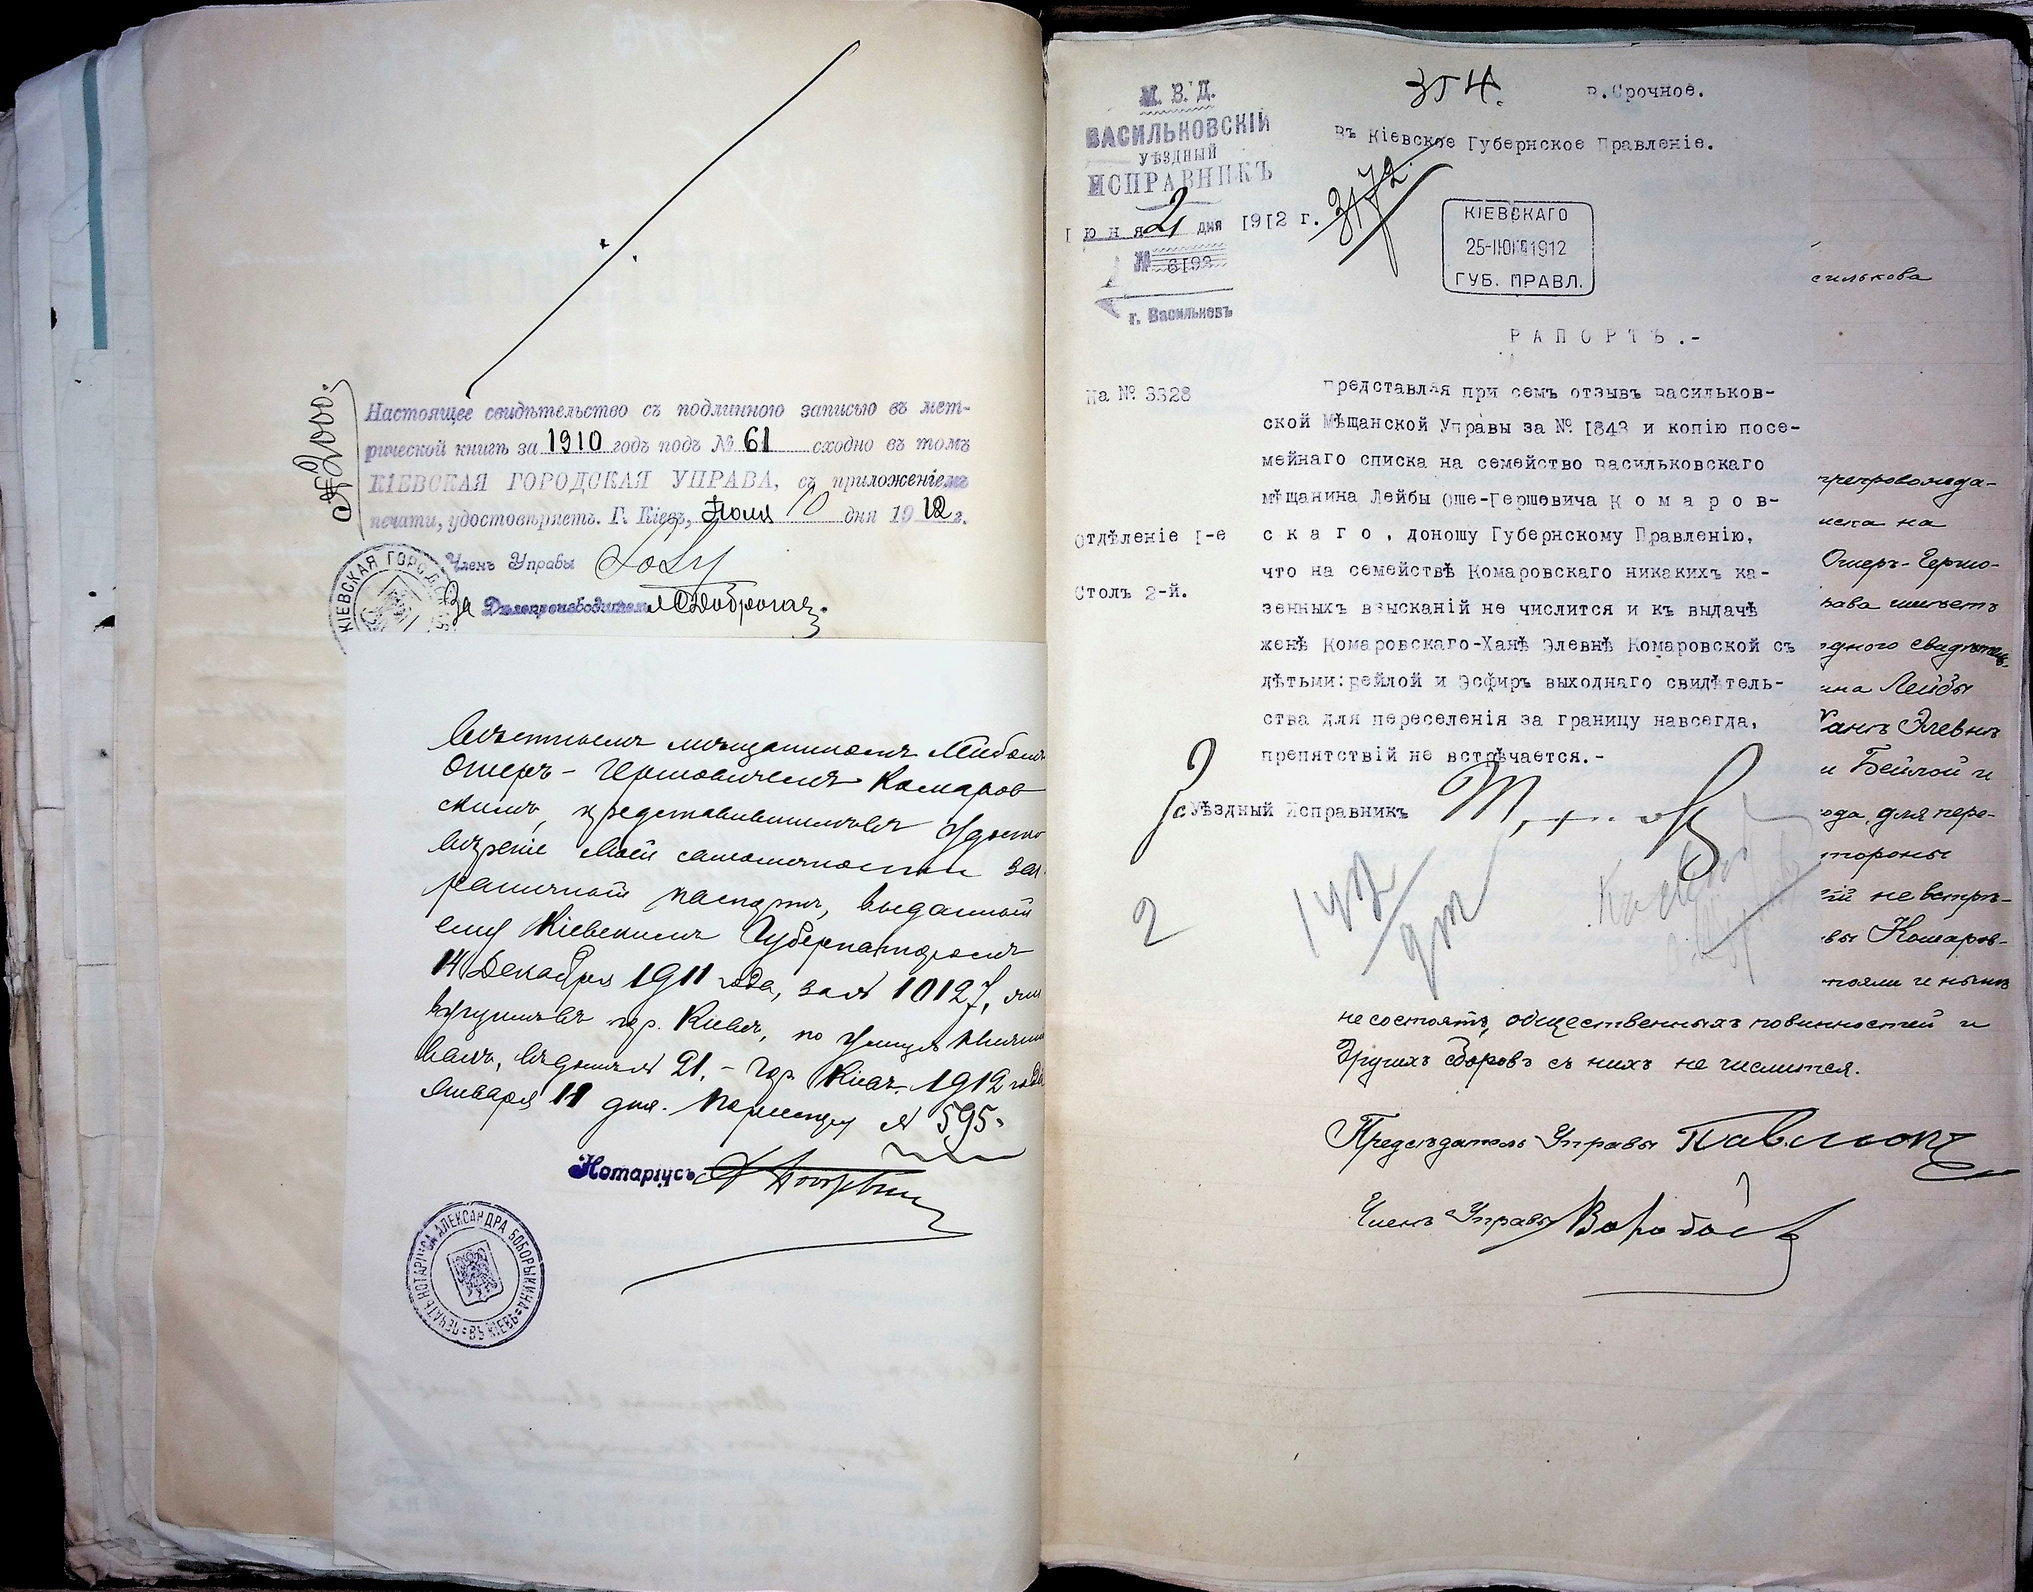 № 2000.
Настоящее свидѣтельство съ подлинною записью въ мет-
рической книгѣ за 1910 годъ подъ № 61 сходно въ томъ
КІЕВСКАЯ ГОРОДСКАЯ УПРАВА, съ приложеніемъ
печати, удостовѣряетъ. Г. Кіевъ, Іюля 10 дня 1912 г.
Членъ Управы
За Дѣлопроизводителя
КІЕВСКАЯ ГОРОД
мѣщаниномъ Лейбомъ
Ошеръ-Гершовичемъ Комаров
скимъ, представившимъ удосто
вѣреніе своей самоличности заг
раничный паспортъ, выданный
ему Кіевскимъ Губернаторомъ
14 Декабря 1911 года, за № 10127, жи
вущимъ въ гор. Кіевѣ, по улицѣ
въ домѣ № 21. - Гор. Кіевъ. 1912 года
Января 11 дня. По реестру № 595.
Нотаріусъ
ПЕЧАТЬ НОТАРІУСА АЛЕКСАНДРА БОБОРЫКИНА ВЪ КІЕВѢ
М. В. Д.
ВАСИЛЬКОВСКІЙ
УѢЗДНЫЙ
ИСПРАВНИКЪ
Іюня 21 дня 1912 г.
№ 6192
г. Васильковъ
354.
В.Срочное.
Въ Кіевское Губернское Правленіе.
3172
КІЕВСКАГО
25-ІЮН 1912
ГУБ. ПРАВЛ.
РАПОРТЪ.-
На № 3328
Представляя при семъ отзывъ Васильков-
ской Мѣщанской Управы за № 1843 и копію посе-
мейнаго списка на семейство Васильковскаго
мѣщанина Лейбы Оше-Гершевича Комаров-
Отдѣленіе I-е
скаго, доношу Губернскому Правленію,
что на семействѣ Комаровскаго никакихъ ка-
Столъ 2-й.
зенныхъ взысканій не числится и къ выдачѣ
женѣ Комаровскаго-Ханѣ Элевнѣ Комаровской съ
дѣтьми: Бейлой и Эсфирь выходнаго свидѣтель-
ства для переселенія за границу навсегда,
препятствій не встрѣчается.-
Уѣздный Исправникъ
2
силькова
препровожда-
иска на
Ошеръ-Гершо-
рава имѣетъ
одного свидѣтель-
ина Лейбы
Ханѣ Элевнѣ
и Бейлой и
ода, для пере-
тороны
ій не встрѣ-
вы Комаров-
тояли и нынѣ
не состоятъ, общественныхъ повинностей и
другихъ сборовъ съ нихъ не числится.
Предсѣдатель Управы
Членъ Управы